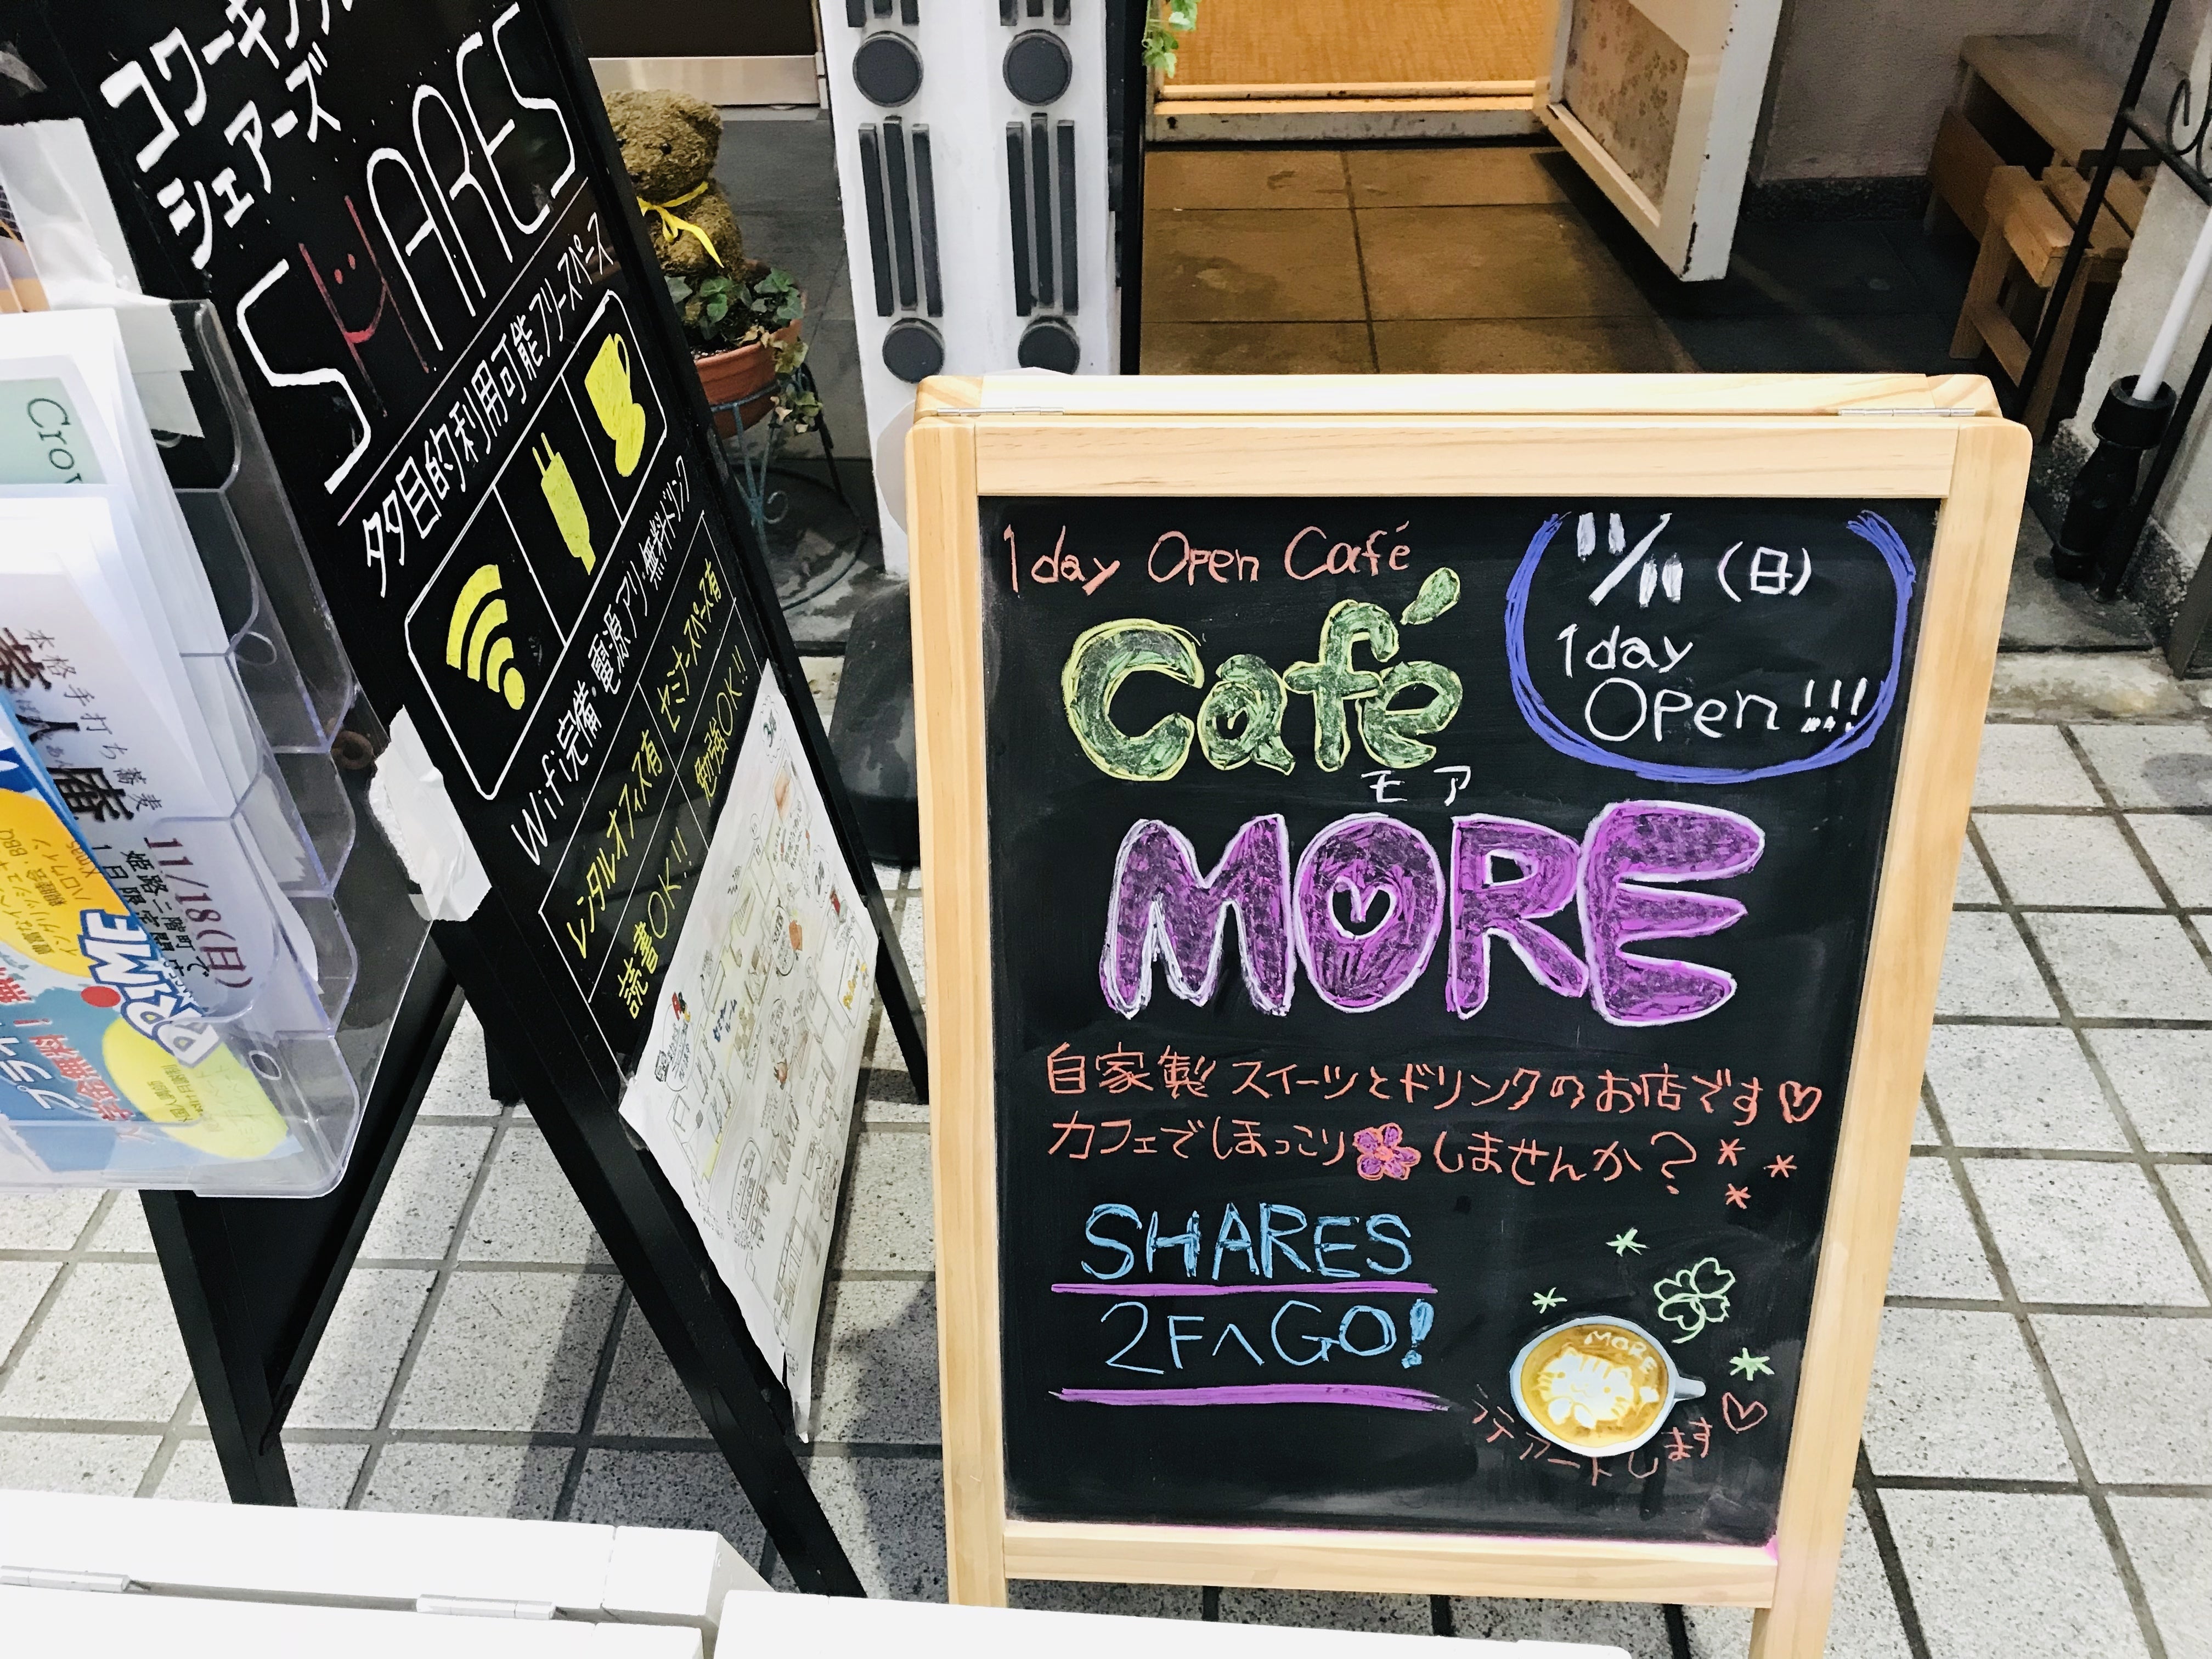 コワーキング
シェアーズ
SHARES
多目的利用可能フリースペース
Wifi完備・電源アリ・無料ドリンク
レンタルオフィス有
セミナースペース有
読書OK!!
勉強OK!!
Crow
本格手打ち蕎麦
庵
11/18(日)
姫路二階町で
1日限定開店
PRIME
プライム
Xmas
ハロウィン
BBQ
1day Open Café
Café
モア
MORE
11/11 (日)
1day
Open!!!
自家製スイーツとドリンクのお店です♡
カフェでほっこりしませんか?
SHARES
2FへGO!
MORE
ラテアートします♡